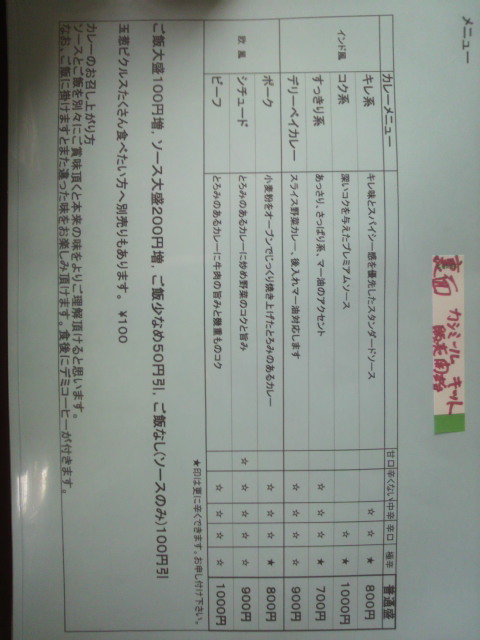 メニュー
裏面 カシミール キット 販売開始
カレーメニュー 甘口 辛くない 中辛 辛口 極辛 普通盛
インド風
キレ系 キレ味とスパイシー感を優先したスタンダードソース ☆ ☆ ★ 800円
コク系 深いコクを与えたプレミアムソース ☆ ★ 1000円
すっきり系 あっさり、さっぱり系、マー油のアクセント ☆ ☆ ☆ ★ 700円
デリーベイカレー スライス野菜カレー、後入れマー油対応します ☆ ☆ ☆ 900円
欧風
ポーク 小麦粉をオーブンでじっくり焼き上げたとろみのあるカレー ☆ ☆ ★ 800円
シチュード とろみのあるカレーに炒め野菜のコクと旨み ☆ ☆ ☆ ☆ 900円
ビーフ とろみのあるカレーに牛肉の旨みと幾重ものコク ☆ ☆ ☆ 1000円
★印は更に辛くできます。お申し付け下さい。
ご飯大盛100円増、ソース大盛200円増、ご飯少なめ50円引、ご飯なし(ソースのみ)100円引
玉葱ピクルスたくさん食べたい方へ別売りもあります。 ¥100
カレーのお召し上がり方
ソースとご飯を別々にご賞味頂くと本来の味をよりご理解頂けると思います。
なお、ご飯に掛けますとまた違った味をお楽しみ頂けます。食後にデミコーヒーが付きます。